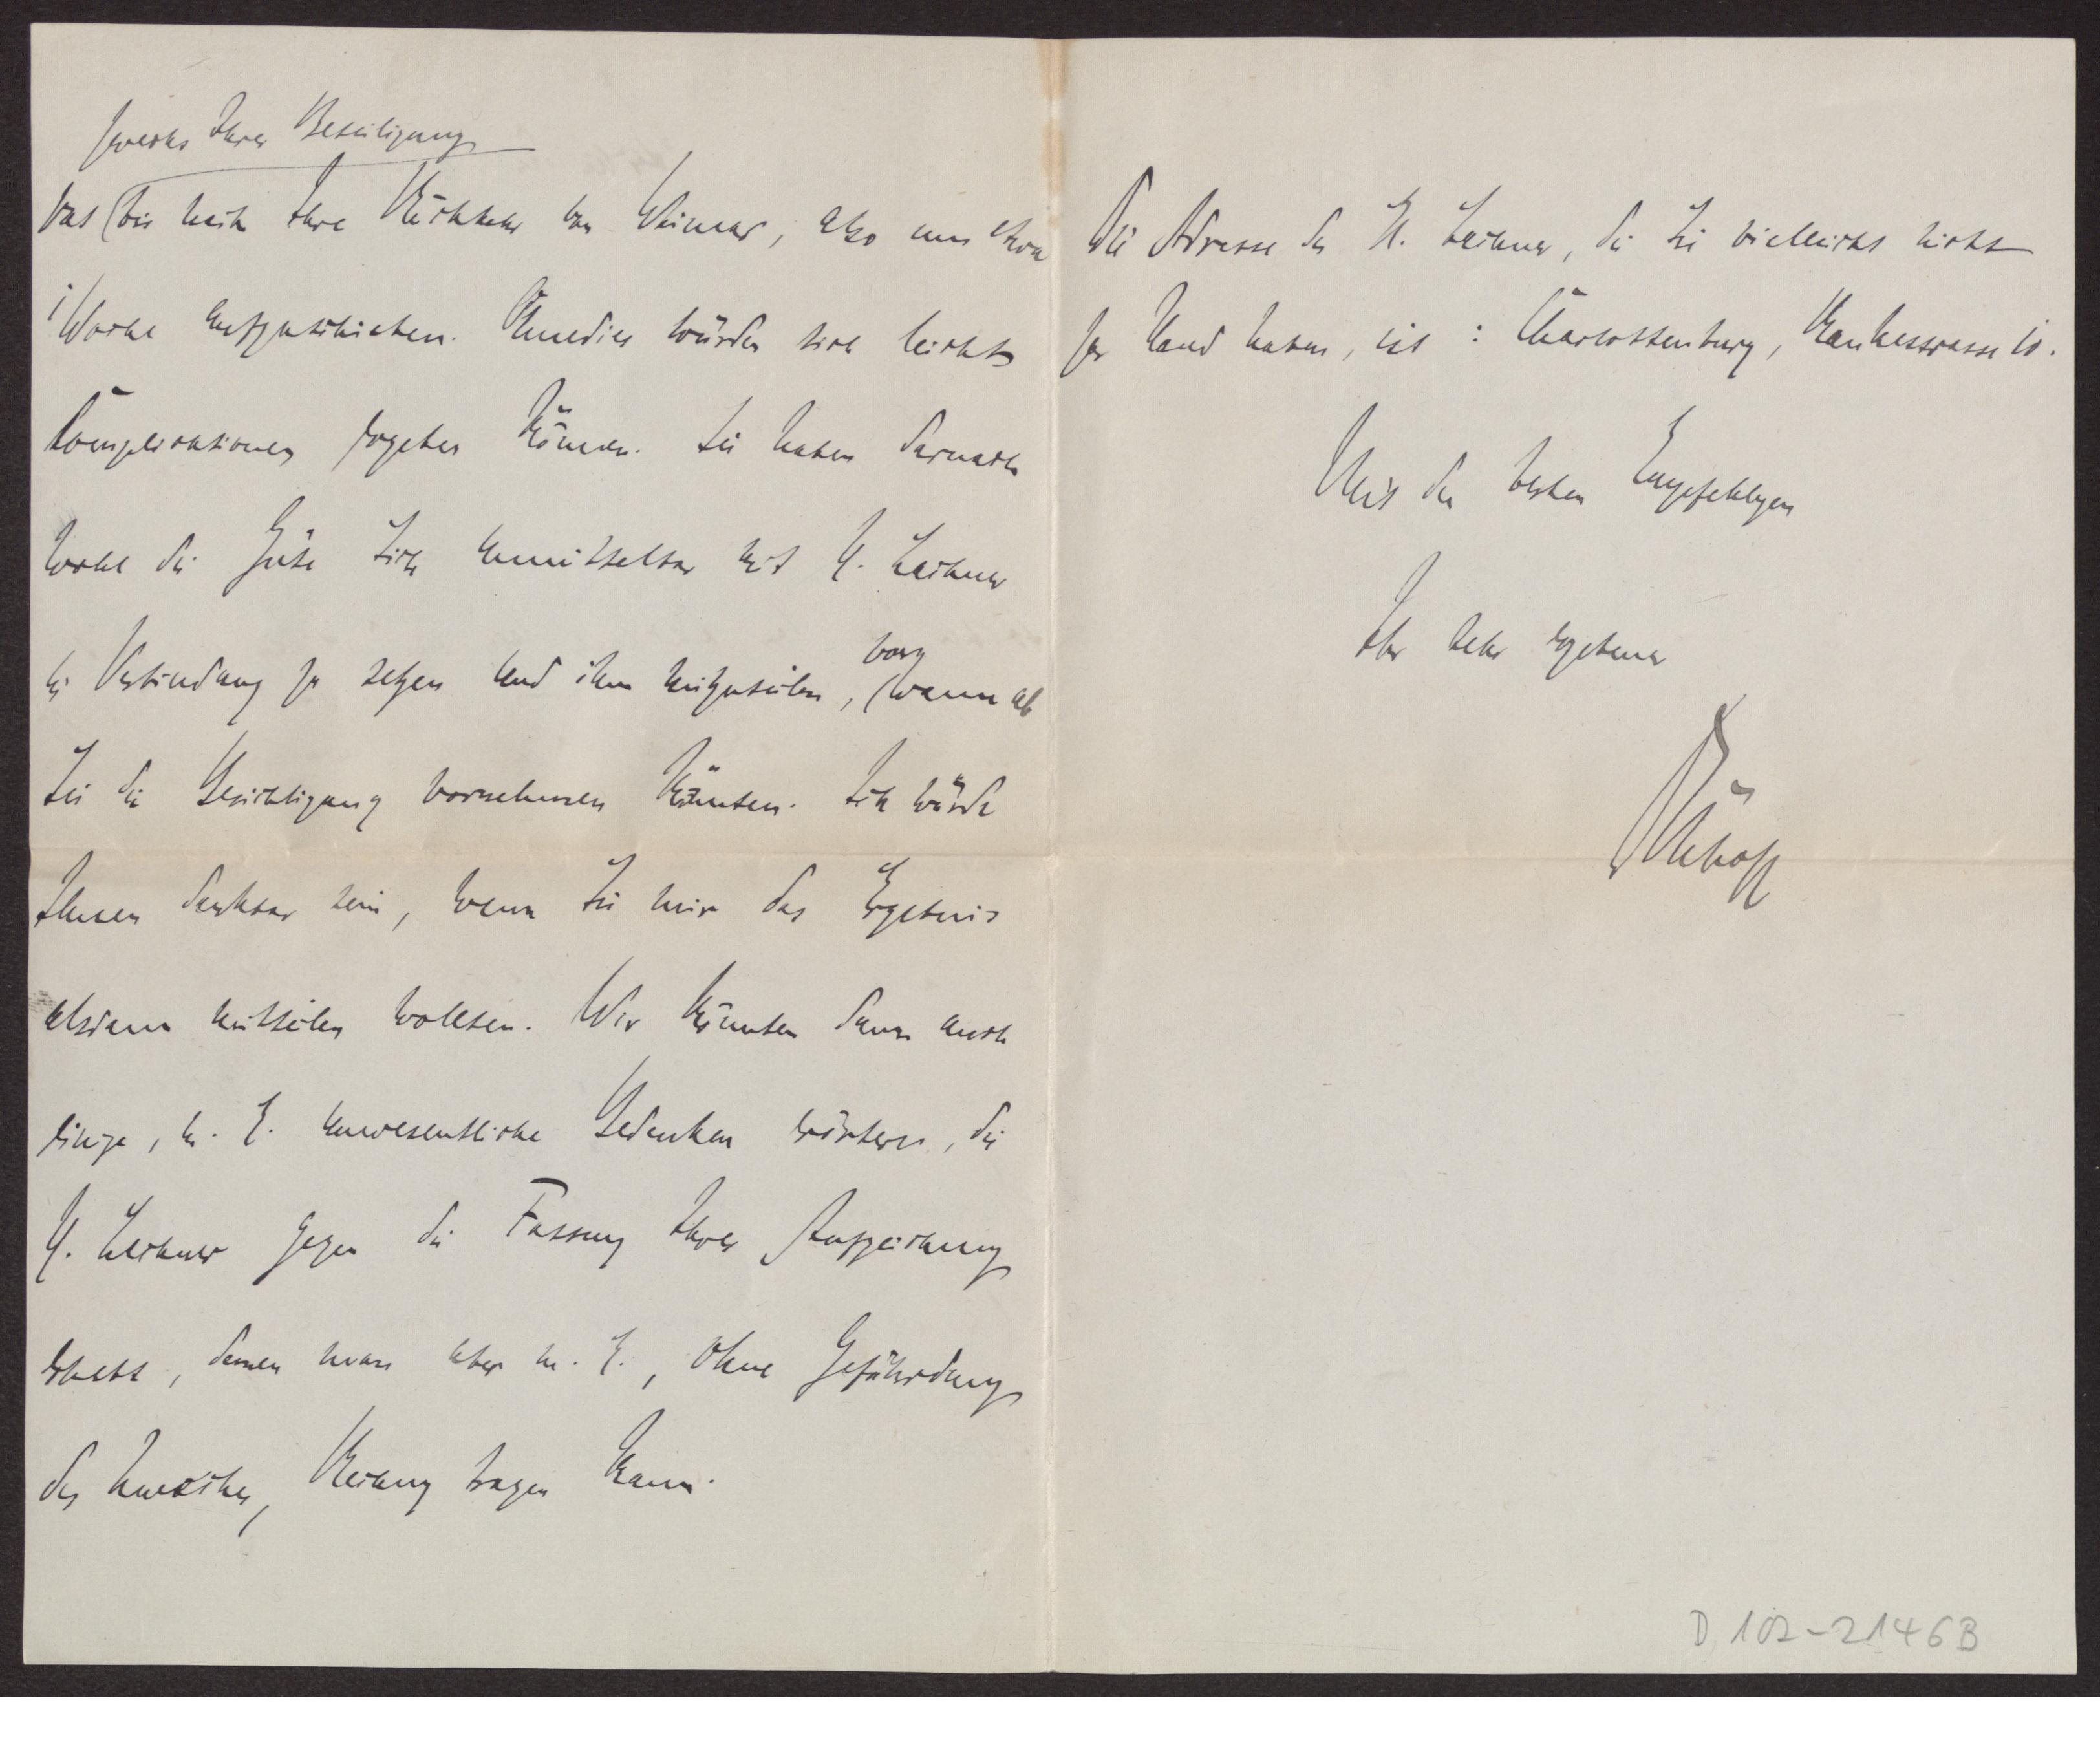 zwecks Ihrer Beteiligung
bis nach Ihre Rückkehr von Weimar, also um etwa
1 Woche aufzuschieben. Ohnedies würden sich leicht
Complicationen ergeben können. Sie haben darnach
wohl die Güte sich unmittelbar mit H. Lechner
in Verbindung zu setzen und ihm mitzuteilen, von wann ab
Sie die Besichtigung vornehmen könnten. Ich würde
Ihnen dankbar sein, wenn Sie mir das Ergebnis
alsdann mitteilen wollten. Wir könnten dann auch
einige, m. E. unwesentliche Bedenken erörtern, die
H. Lechner gegen die Fassung Ihrer Aufzeichnung
erhebt, denen man aber m. E., ohne Gefährdung
des Zweckes, Rechnung tragen kann.
Die Adresse des H. Lechner, die Sie vielleicht nicht
zur Hand haben, ist : Charlottenburg, Rankestrasse
Mit den besten Empfehlungen
Ihr sehr ergebener
D 102-2146B